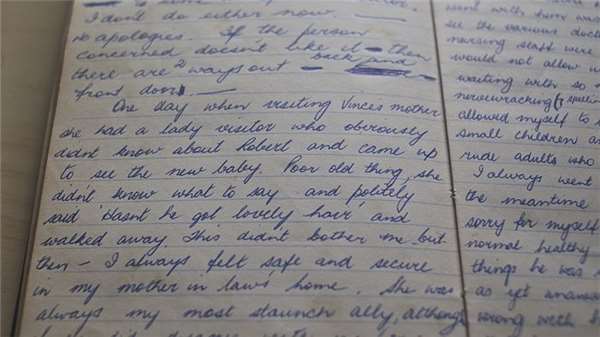 I don't do either now.
no apologies. If the person
concerned doesn't like it - then
there are 2 ways out - back and
front door. -
One day when visiting Vince's mother
she had a lady visitor who obviously
didnt know about Robert and came up
to see the new baby. Poor old thing, she
didn't know what to say and politely
said 'Hasn't he got lovely hair', and
walked away. This didn't bother me but
then - I always felt safe and secure
in my mother in law's home. She was
always my most staunch ally, although
went with him
see the various doct
nursing staff were
would not allow
waiting with so
nervewracking
allowed myself to
small children a
rude adults who
I always went
the meantime
sorry for myself
normal healthy
things he was
as yet unawa
wrong with